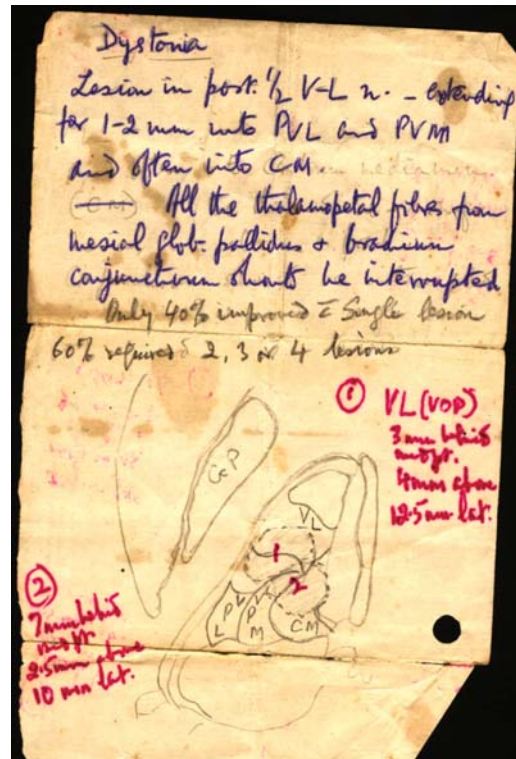 Dystonia
Lesion in post. 1/2 V-L n. - extending
for 1-2 mm into PVL and PVM
and often into CM
(CM) All the thalamopetal fibres from
mesial glob. pallidus & brachium
conjunctivum should be interrupted
Only 40% improved c̄ Single lesion
60% required 2, 3 or 4 lesions
① VL (VOP)
3 mm behind
midpt.
4mm above
12.5mm lat.
GP
VL
1
2
PL
VPM
CM
②
7mm behind
midpt
2.5mm above
10 mm lat.